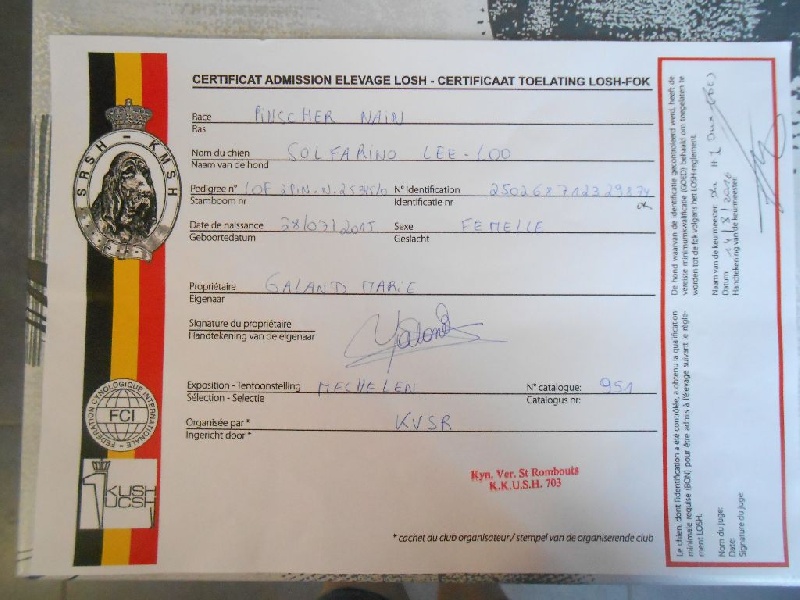 CERTIFICAT ADMISSION ELEVAGE LOSH - CERTIFICAAT TOELATING LOSH-FOK
Race PINSCHER NAIN
Ras
Nom du chien SOLFARINO LEE-LOO
Naam van de hond
Pedigree n° LOF N° Identification
Stamboom nr Identificatie nr
Date de naissance Sexe FEMELLE
Geboortedatum Geslacht
Propriétaire GALAND MARIE
Eigenaar
Signature du propriétaire
Handtekening van de eigenaar
Exposition - Tentoonstelling MECHELEN N° catalogue: 951
Sélection - Selectie Catalogus nr:
Organisée par * KVSR
Ingericht door *
Kyn. Ver. St Rombouts
K.K.U.S.H. 703
* cachet au club organisateur / stempel van de organiserende club
SRSH - KMSH
FEDERATION CYNOLOGIQUE INTERNATIONALE
FCI
KUSH
UCSH
Le chien, dont l'identification a été contrôlée, a obtenu la qualification
minimale requise (BON) pour être admis à l'élevage suivant le règle-
ment LOSH.
Nom du juge:
Date:
Signature du juge:
De hond waarvan de identificatie gecontroleerd werd, heeft de
vereiste minimumkwalificatie (GOED) behaald om toegelaten te
worden tot de fok volgens het LOSH-reglement.
Naam van de keurmeester:
Datum:
Handtekening van de keurmeester: